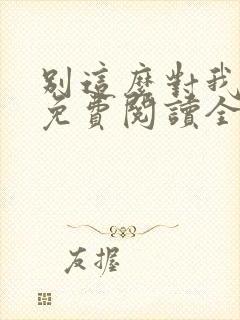 別這麼對我
免費閱讀全
友握